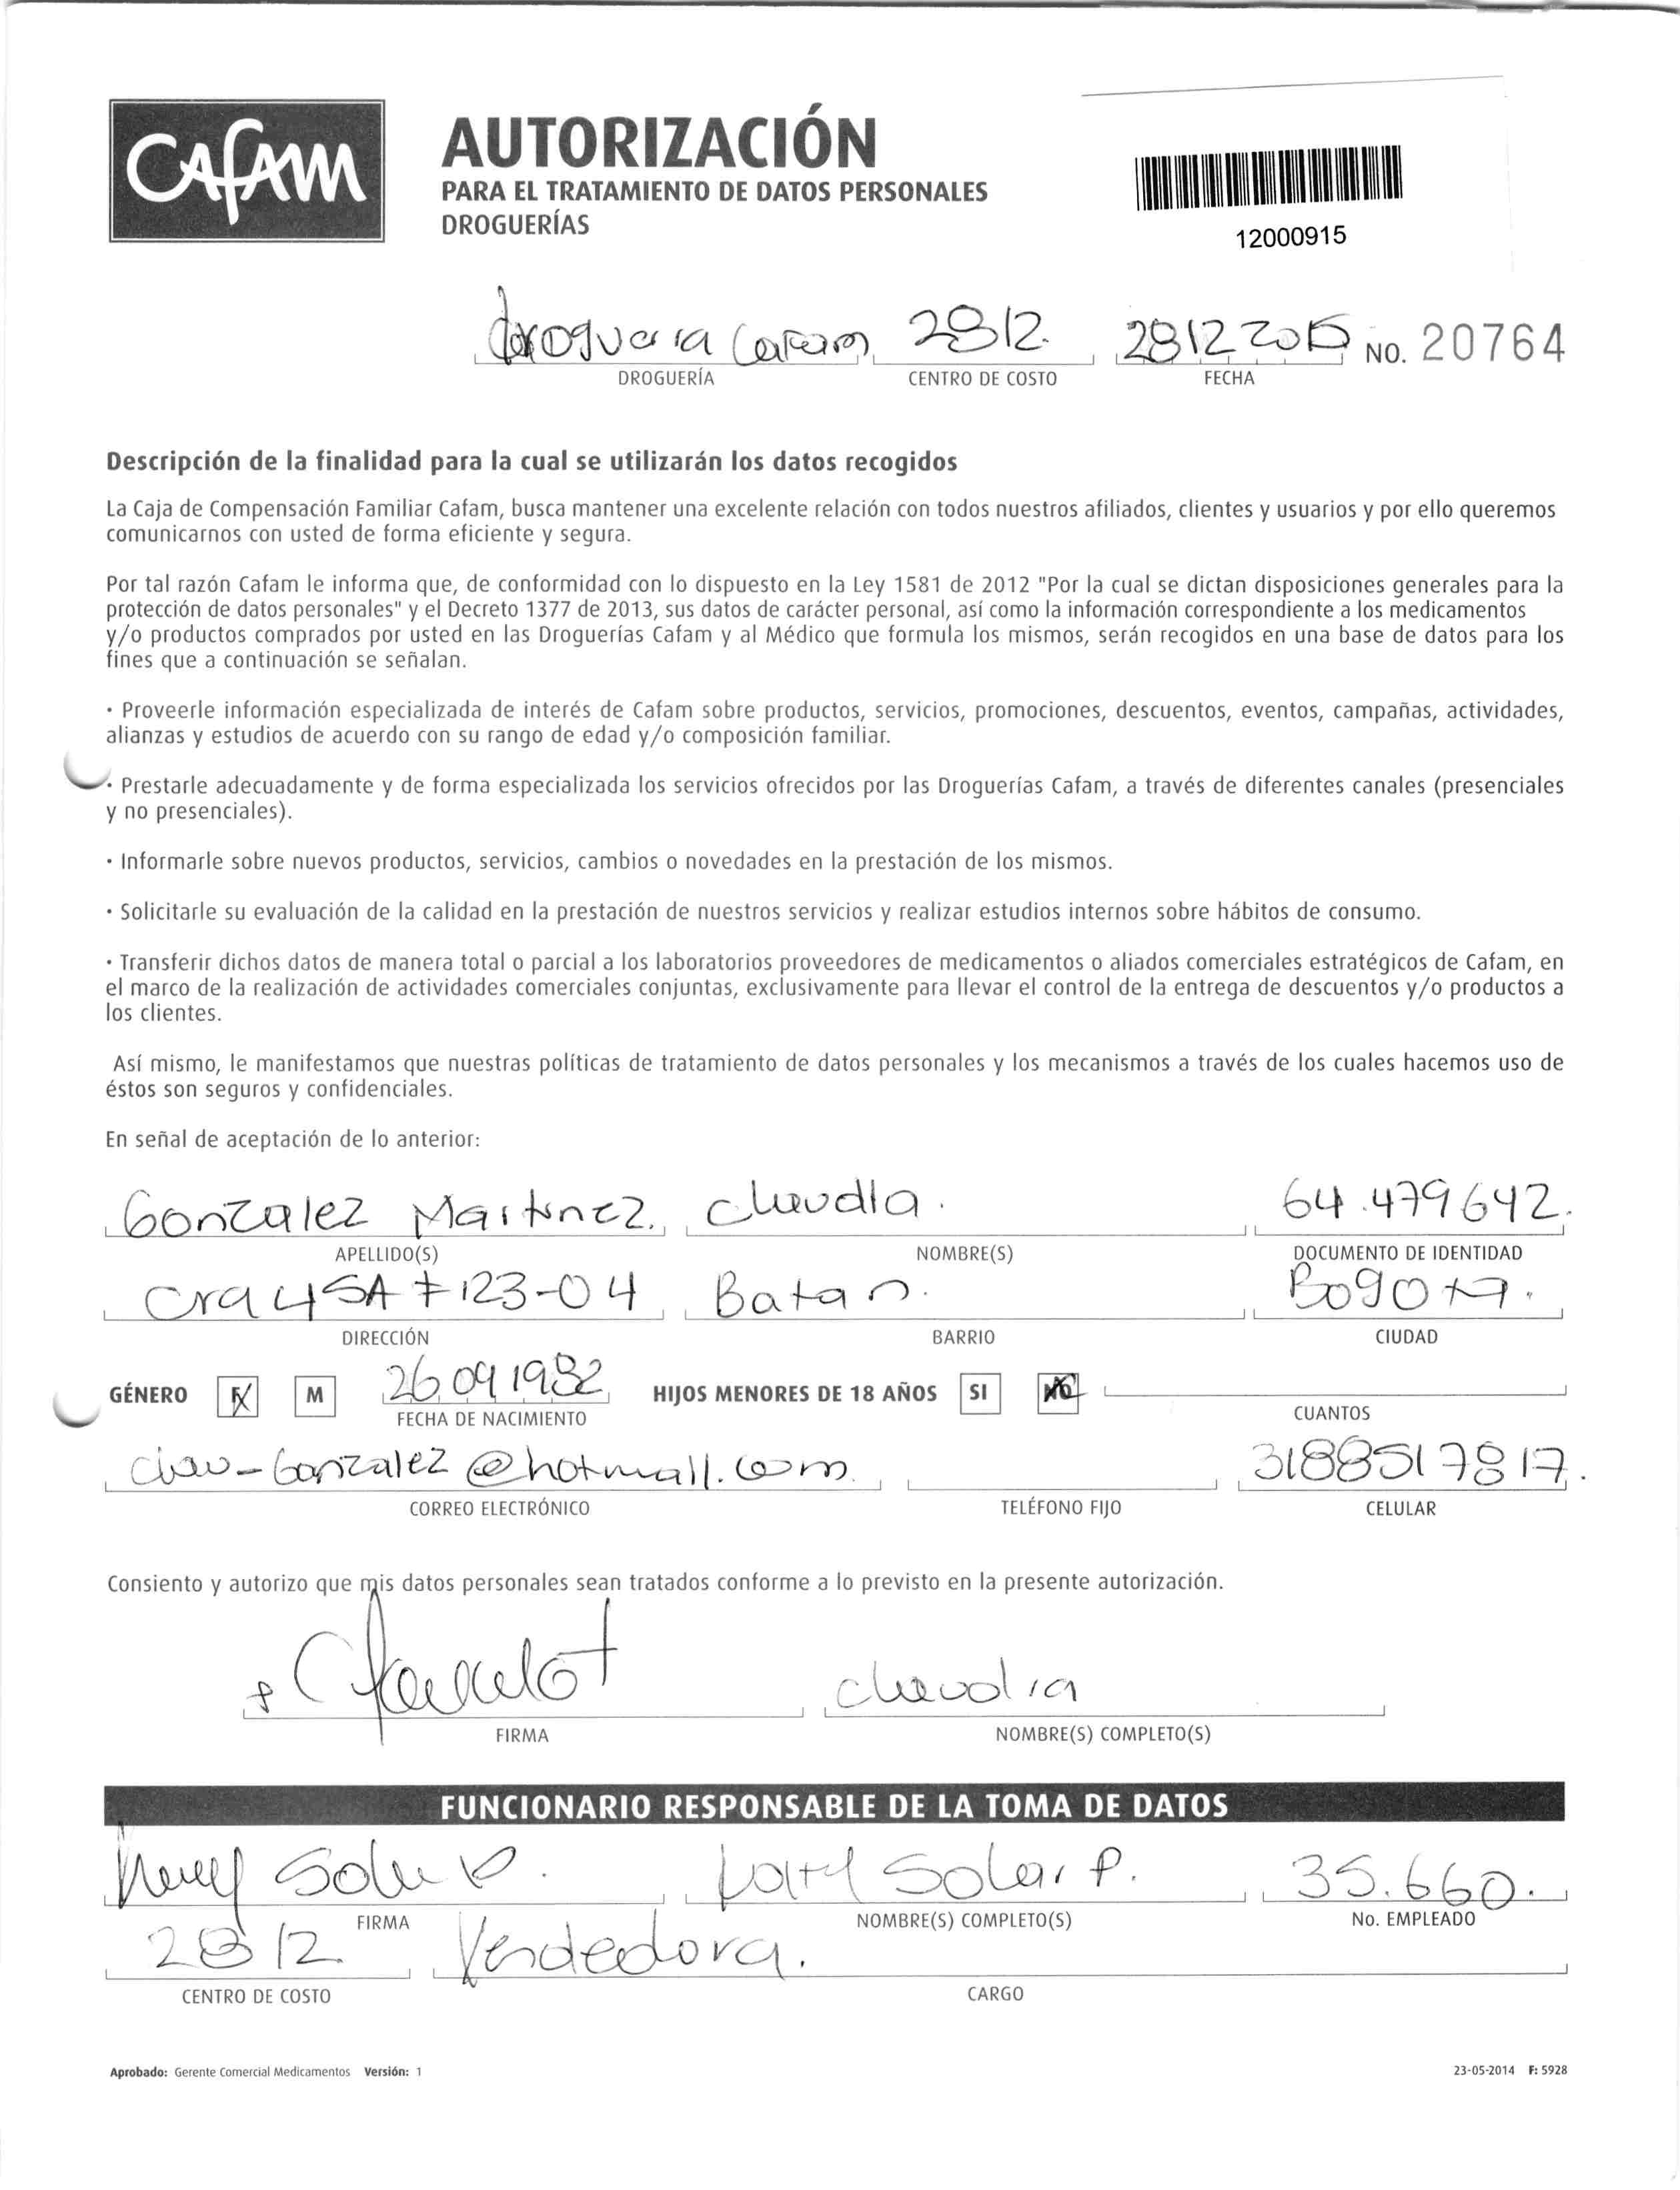 CAFAM
AUTORIZACIÓN
PARA EL TRATAMIENTO DE DATOS PERSONALES
DROGUERÍAS
12000915
Drogueria Cafam 2812. 28122015 NO. 20764
DROGUERÍA CENTRO DE COSTO FECHA
Descripción de la finalidad para la cual se utilizarán los datos recogidos
La Caja de Compensación Familiar Cafam, busca mantener una excelente relación con todos nuestros afiliados, clientes y usuarios y por ello queremos
comunicarnos con usted de forma eficiente y segura.
Por tal razón Cafam le informa que, de conformidad con lo dispuesto en la Ley 1581 de 2012 "Por la cual se dictan disposiciones generales para la
protección de datos personales" y el Decreto 1377 de 2013, sus datos de carácter personal, así como la información correspondiente a los medicamentos
y/o productos comprados por usted en las Droguerías Cafam y al Médico que formula los mismos, serán recogidos en una base de datos para los
fines que a continuación se señalan.
· Proveerle información especializada de interés de Cafam sobre productos, servicios, promociones, descuentos, eventos, campañas, actividades,
alianzas y estudios de acuerdo con su rango de edad y/o composición familiar.
· Prestarle adecuadamente y de forma especializada los servicios ofrecidos por las Droguerías Cafam, a través de diferentes canales (presenciales
y no presenciales).
· Informarle sobre nuevos productos, servicios, cambios o novedades en la prestación de los mismos.
· Solicitarle su evaluación de la calidad en la prestación de nuestros servicios y realizar estudios internos sobre hábitos de consumo.
· Transferir dichos datos de manera total o parcial a los laboratorios proveedores de medicamentos o aliados comerciales estratégicos de Cafam, en
el marco de la realización de actividades comerciales conjuntas, exclusivamente para llevar el control de la entrega de descuentos y/o productos a
los clientes.
Así mismo, le manifestamos que nuestras políticas de tratamiento de datos personales y los mecanismos a través de los cuales hacemos uso de
éstos son seguros y confidenciales.
En señal de aceptación de lo anterior:
Gonzalez Martinez. Claudia. 64.479642.
APELLIDO(S) NOMBRE(S) DOCUMENTO DE IDENTIDAD
Cra 45A # 123-04 Batan. Bogota.
DIRECCIÓN BARRIO CIUDAD
GÉNERO F M 26 09 1982 HIJOS MENORES DE 18 AÑOS SI NO
FECHA DE NACIMIENTO CUANTOS
clau-Gonzalez@hotmail.com. 3188517817.
CORREO ELECTRÓNICO TELÉFONO FIJO CELULAR
Consiento y autorizo que mis datos personales sean tratados conforme a lo previsto en la presente autorización.
claudia
FIRMA NOMBRE(S) COMPLETO(S)
FUNCIONARIO RESPONSABLE DE LA TOMA DE DATOS
Solar P. 35.660.
FIRMA NOMBRE(S) COMPLETO(S) No. EMPLEADO
2812 Vendedora.
CENTRO DE COSTO CARGO
Aprobado: Gerente Comercial Medicamentos Versión: 1 23-05-2014 F: 5928